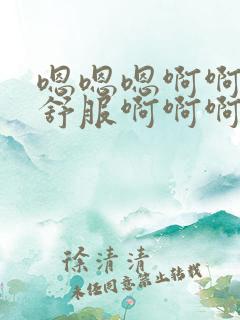 嗯嗯嗯啊啊
舒服啊啊啊
徐清清
未经同意禁止转载